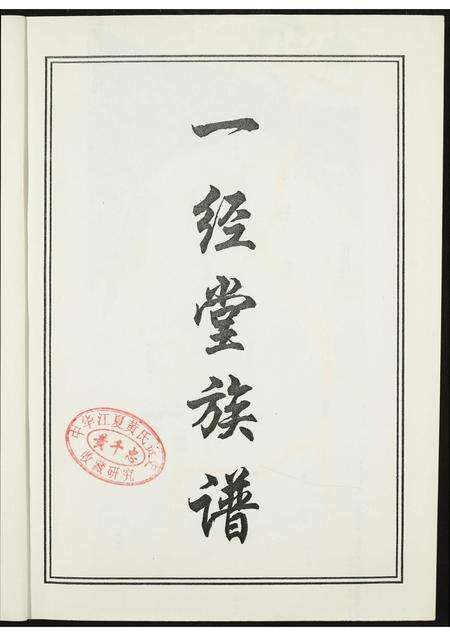 一经堂族谱
中华江夏黄氏
黄千忠
收藏研究